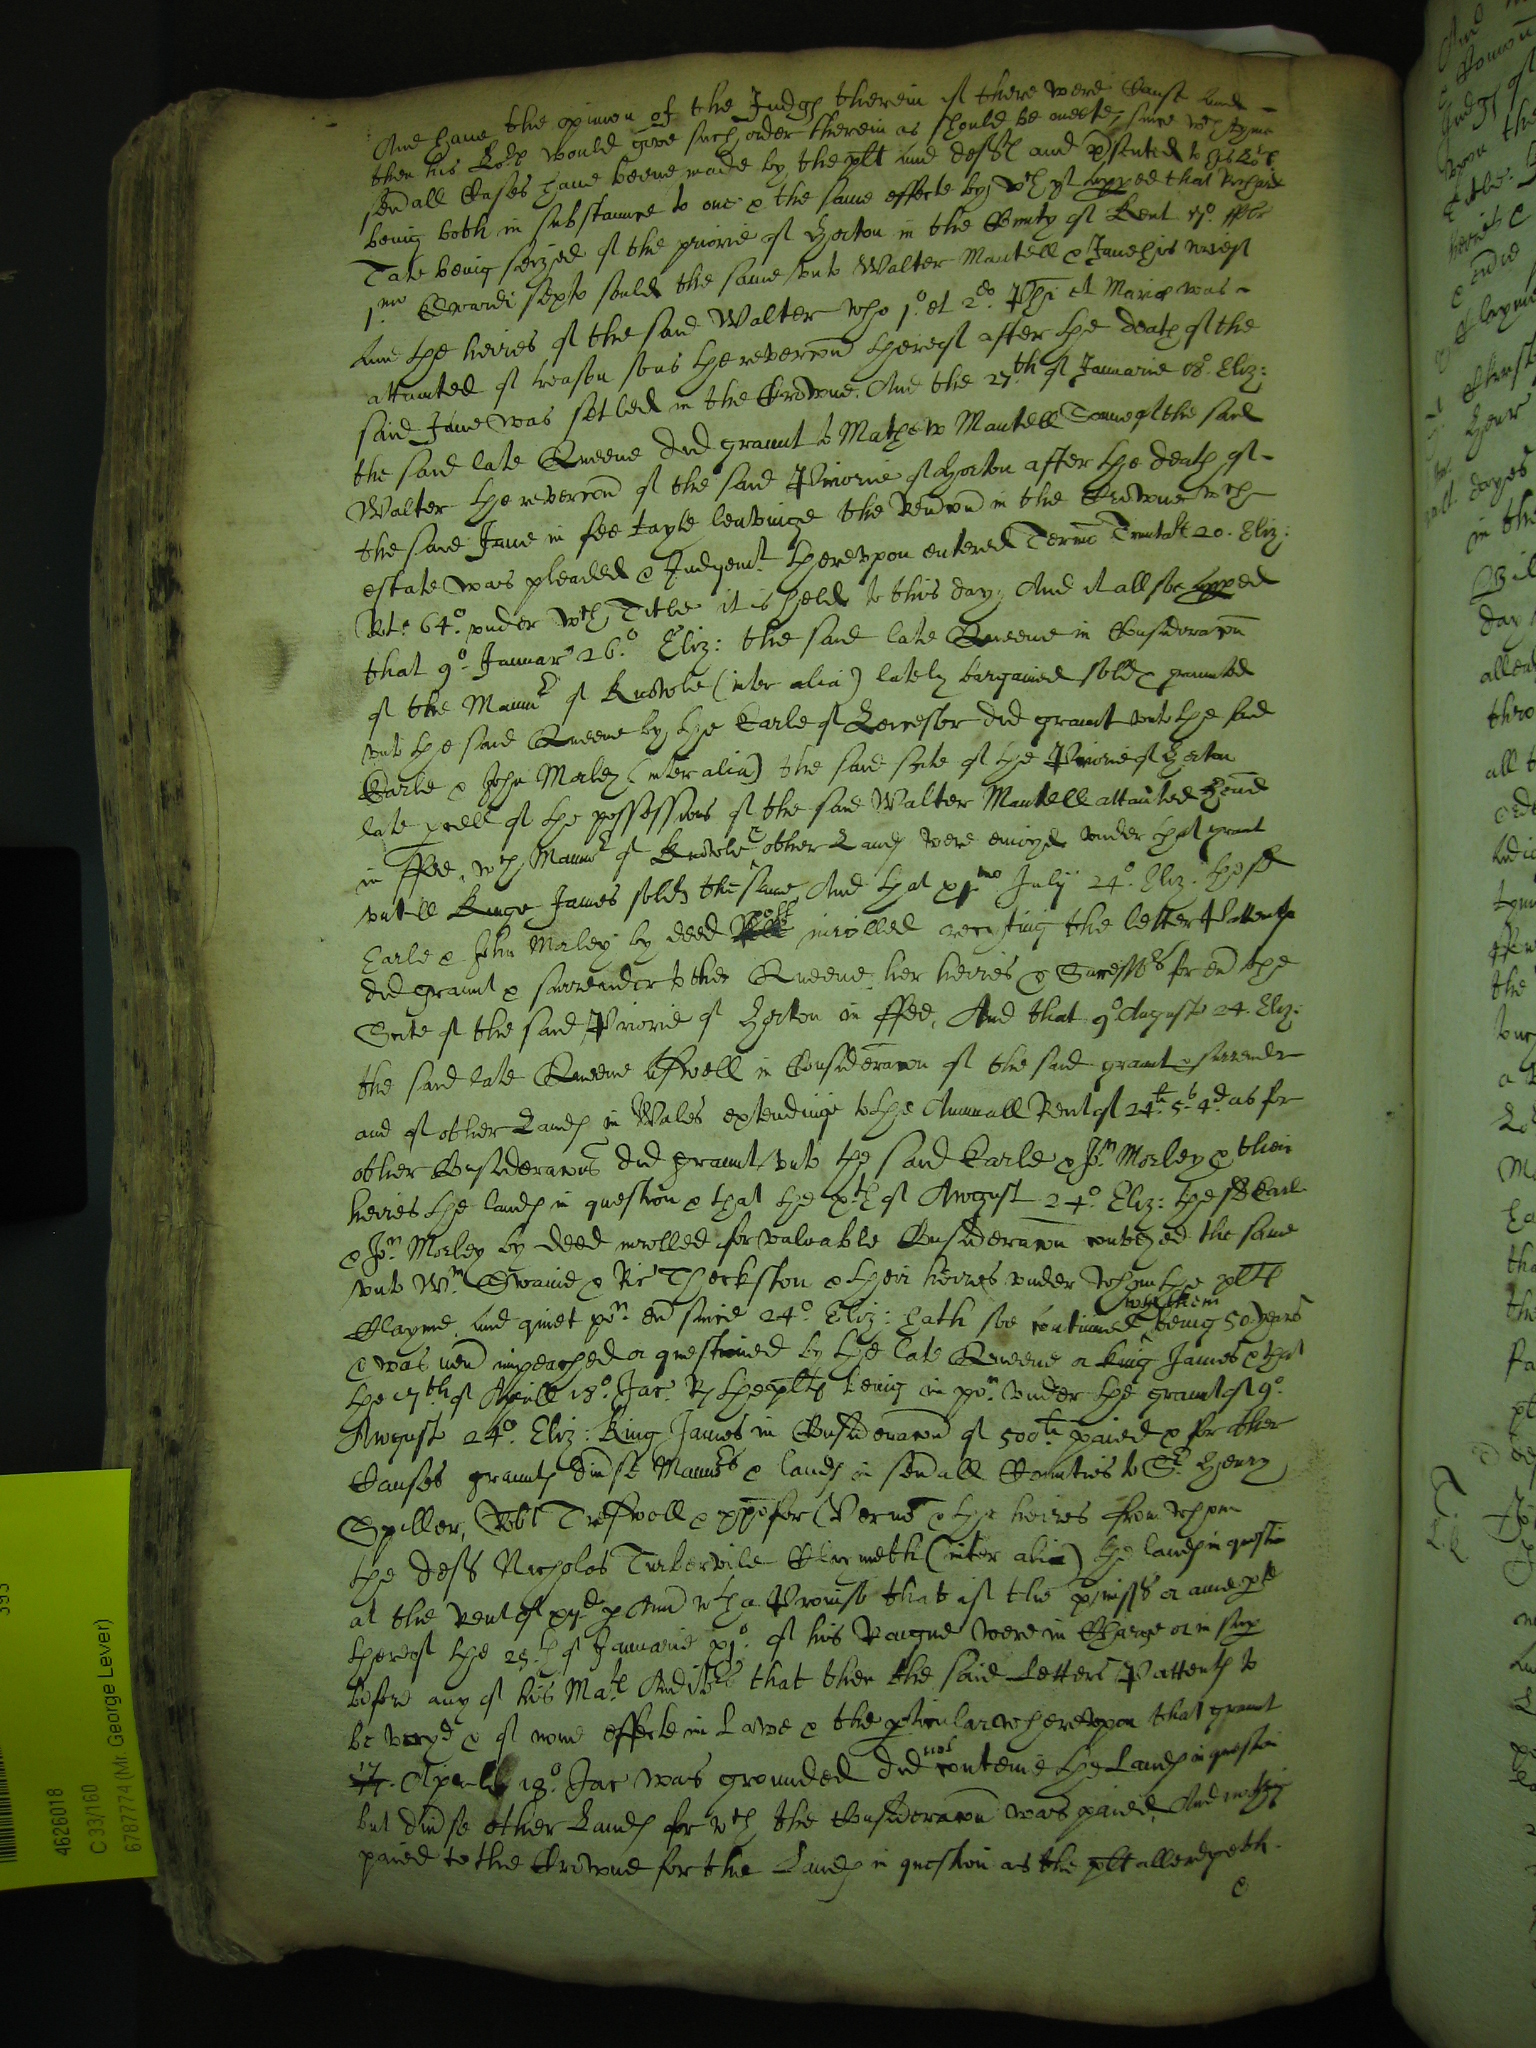 And haue the opinion of the Judges therein if there were Cause and
then his Lopp would give such order therein as should be meete, since wch tyme
seuall Cases haue beene made by the plt and deftes and psented to his Lopp
being both in substance to one & the same effecte by wch yt appeed that Richard
Tate being seized of the priorie of Horton in the County of Kent
1mo Edwardi sexto sould the same vnto Walter Mantell & Jane his wief
and the heires of the said Walter who 1o et 2do Phi et Mariæ was
attainted of treason soe the revercon thereof after the death of the
said Jane was setled in the Crowne. And the 27th of Januarie 18o Eliz:
the said late Queene did graunt to Mathew Mantell Sonne of the said
Walter the revercon of the said Priorie of Horton after the death of
the said Jane in fee tayle leavinge the Revercon in the Crowne wch
estate was pleaded & Judgemt therevpon entered Termo Trinitatis 20. Eliz:
Rto 64o vnder wch Title it is held to this day, And it allsoe appeed
that 9o Januar 26o Eliz: the said late Queene in Consideracon
of the Mannor of Knowle (inter alia) lately bargained sold & graunted
vnto the said Queene by the Earle of Leicester did graunt vnto the said
Earle & John Morley (inter alia) the said scite of the Priorie of Horton
late pcell of the possessions of the said Walter Mantell attainted Hend
in ffee, wch Mannor of Knowle & other Landes were enioyed vnder that graunt
vntill Kinge James sold the same And that 1mo July 24o Eliz. the sd
Earle & John Morley by deed poll inrolled reciting the letters Pattentes
did graunt & surrender to the Queene her heires & Successors for eu the
Scite of the said Priorie of Horton in ffee, And that 9o Augusto 24. Eliz:
the said late Queene aswell in Consideracon of the said graunt & surrender
and of other Landes in Wales extendinge to the Annuall Rent of 24li 5s 4d as for
other Consideracons did graunt vnto the said Earle & Jon Morley & their
heires the landes in question & that the xth of August 24o Eliz: the sd Earle
& Jon Morley by deed inrolled for valuable Consideracon conveyed the same
vnto Wm Swaine & Ric Theckston & their heires vnder whom the plts
Clayme, and quiet pon eu since 24o Eliz: hath soe continued wth them being 50 yeares
& was neu impeached or questioned by the late Queene or king James & that
the 17th of Aprill 18o Jac. R, the plts being in pon vnder the graunt of 9o
August 24o Eliz: King James in Consideracon of 500li paied & for other
Causes grauntes diuse Mannors & landes in seuall Counties to Sr Henry
Spiller, Robt Treswell & Xpofer Vernon & the heires from whom
the deft Nicholas Turbervile Claymeth (inter alia) the landes in question
at the rent of xijd p Ann wth a Proviso that if the pmisses or anie pte
thereof the 25th of Januarie xjo of his Raigne were in Charge or in sup
before any of his Mates Auditors that then the said Letters Pattentes to
be voyd & of none effecte in Lawe & the pticular wherevpon that graunt
17 Aprilis 18o Jac was grounded did not conteine the Landes in question
but diuse other Landes for wch the Consideracon was paied, And nothing
paied to the Crowne for the Landes in question as the plt alledgeth.
&
4626018
C 33/160
6787774 (Mr. George Lever)